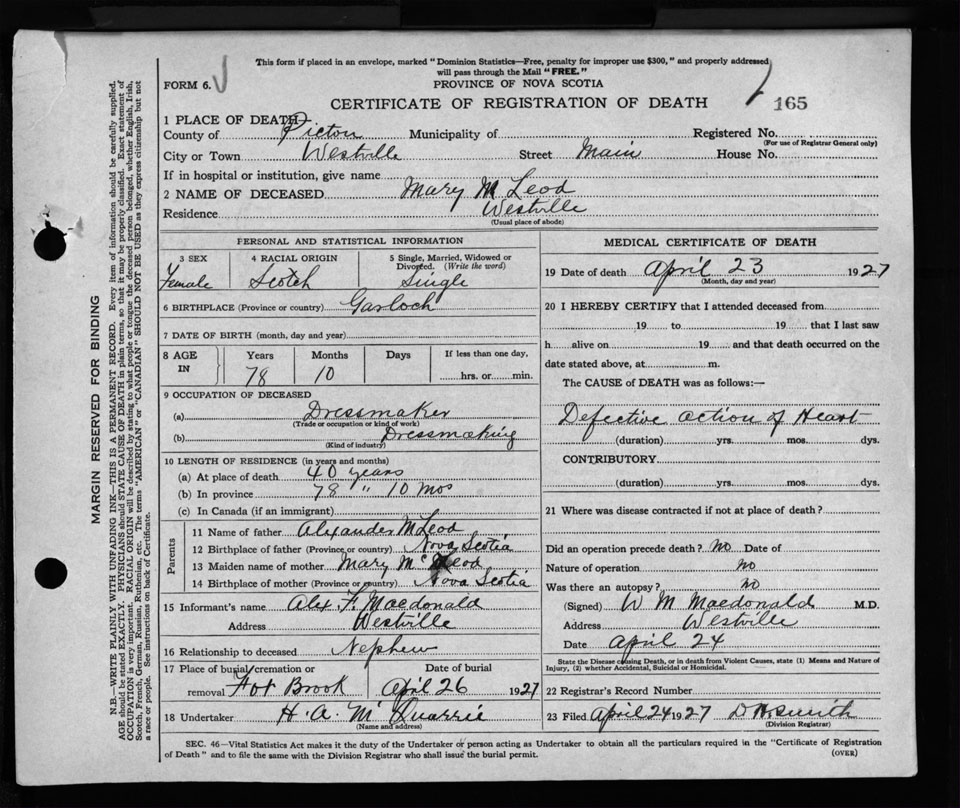 This form if placed in an envelope, marked "Dominion Statistics—Free, penalty for improper use $300," and properly addressed
will pass through the Mail "FREE."
FORM 6.
PROVINCE OF NOVA SCOTIA
CERTIFICATE OF REGISTRATION OF DEATH
165
1 PLACE OF DEATH
County of Pictou Municipality of Registered No.
(For use of Registrar General only)
City or Town Westville Street Main House No.
If in hospital or institution, give name
2 NAME OF DECEASED Mary McLeod
Residence Westville
(Usual place of abode)
PERSONAL AND STATISTICAL INFORMATION
3 SEX 4 RACIAL ORIGIN 5 Single, Married, Widowed or
Divorced. (Write the word)
Female Scotch Single
6 BIRTHPLACE (Province or country) Garloch
7 DATE OF BIRTH (month, day and year)
8 AGE IN Years Months Days If less than one day,
78 10 hrs. or min.
9 OCCUPATION OF DECEASED
(a) Dressmaker
(Trade or occupation or kind of work)
(b) Dressmaking
(Kind of industry)
10 LENGTH OF RESIDENCE (in years and months)
(a) At place of death 40 years
(b) In province 78 " 10 mos
(c) In Canada (if an immigrant)
Parents
11 Name of father Alexander McLeod
12 Birthplace of father (Province or country) Nova Scotia
13 Maiden name of mother Mary McLeod
14 Birthplace of mother (Province or country) Nova Scotia
15 Informant's name Alex F. Macdonald
Address Westville
16 Relationship to deceased Nephew
17 Place of burial, cremation or Date of burial
removal Fox Brook April 26 1927
18 Undertaker H. A. McQuarrie
(Name and address)
MEDICAL CERTIFICATE OF DEATH
19 Date of death April 23 1927
(Month, day and year)
20 I HEREBY CERTIFY that I attended deceased from
19 to 19 that I last saw
h alive on 19 and that death occurred on the
date stated above, at m.
The CAUSE of DEATH was as follows:—
Defective action of Heart
(duration) yrs. mos. dys.
CONTRIBUTORY
(duration) yrs. mos. dys.
21 Where was disease contracted if not at place of death?
Did an operation precede death? no Date of
Nature of operation no
Was there an autopsy? no
(Signed) W M Macdonald M.D.
Address Westville
Date April 24
State the Disease causing Death, or in death from Violent Causes, state (1) Means and Nature of
Injury, (2) whether Accidental, Suicidal or Homicidal.
22 Registrar's Record Number
23 Filed April 24 1927
(Division Registrar)
SEC. 46—Vital Statistics Act makes it the duty of the Undertaker or person acting as Undertaker to obtain all the particulars required in the "Certificate of Registration
of Death" and to file the same with the Division Registrar who shall issue the burial permit.
(OVER)
MARGIN RESERVED FOR BINDING
N.B.—WRITE PLAINLY WITH UNFADING INK—THIS IS A PERMANENT RECORD. Every item of information should be carefully supplied.
AGE should be stated EXACTLY. PHYSICIANS should STATE CAUSE OF DEATH in plain terms, so that it may be properly classified. Exact statement of
OCCUPATION is very important. RACIAL ORIGIN will be described by stating to what people or tongue the deceased person belonged, whether English, Irish,
Scotch, French, German, Russian, Ruthenian, etc. The terms "AMERICAN" or "CANADIAN" SHOULD NOT BE USED as they express citizenship but not
a race or people. See instructions on back of Certificate.